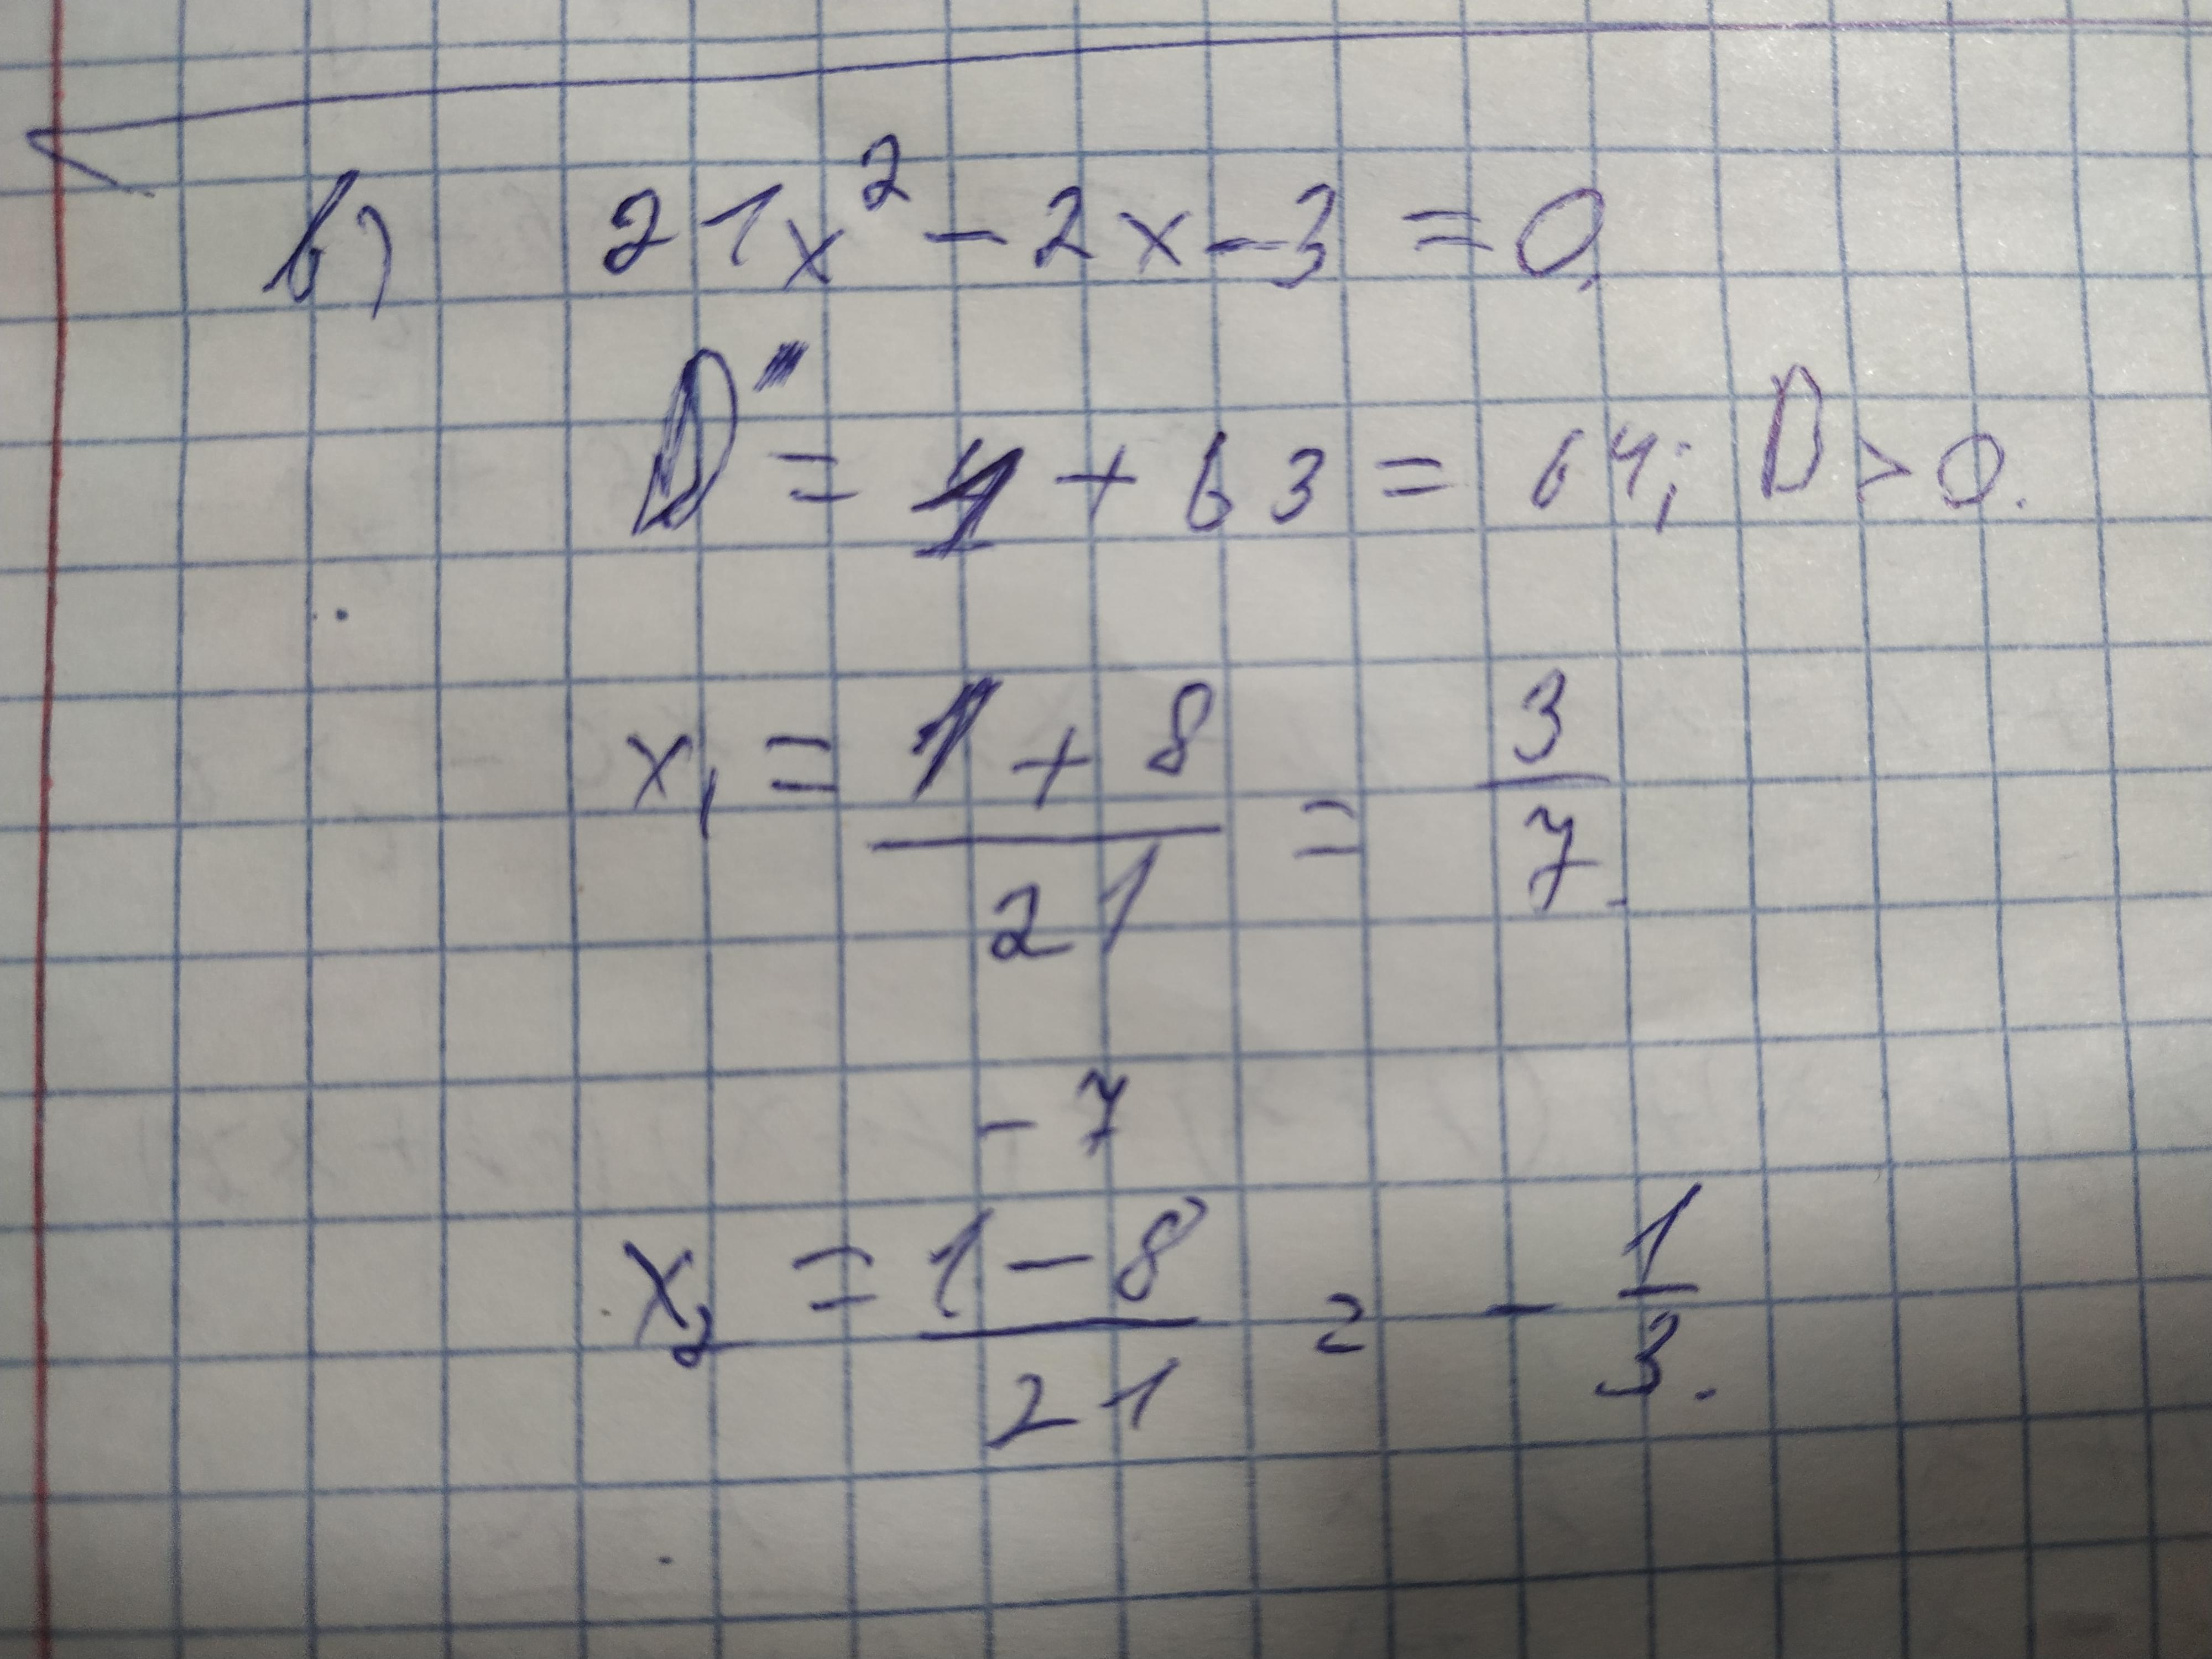 в) 21x² - 2x - 3 = 0.
D = 1 + 63 = 64; D > 0.
x₁ = (1 + 8)/21 = 3/7.
-7
x₂ = (1 - 8)/21 = - 1/3.